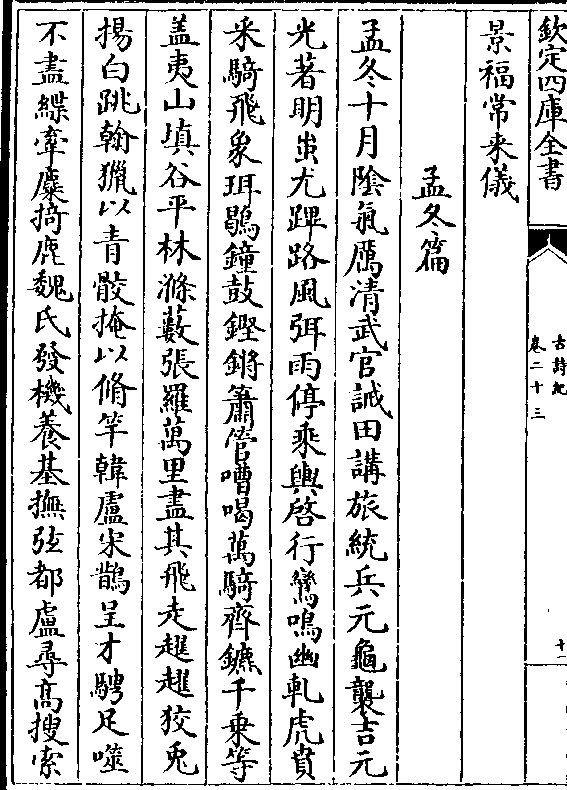 欽定四庫全書
古詩紀
卷二十三
十一
景福常来儀
孟冬篇
孟冬十月隂氣厲清武官誡田講旅統兵元龜襲吉元
光著明蚩尤蹕路風弭雨停乘輿啓行鸞鳴幽軋虎賁
采騎飛象珥鶡鐘鼓鏗鏘簫管嘈喝萬騎齊鑣千乘等
盖夷山填谷平林滌藪張羅萬里盡其飛走趯趯狡兎
揚白跳翰獵以青骹掩以脩竿韓盧宋鵲呈才騁足噬
不盡緤牽麋掎鹿魏氏發機養基撫弦都盧尋高搜索